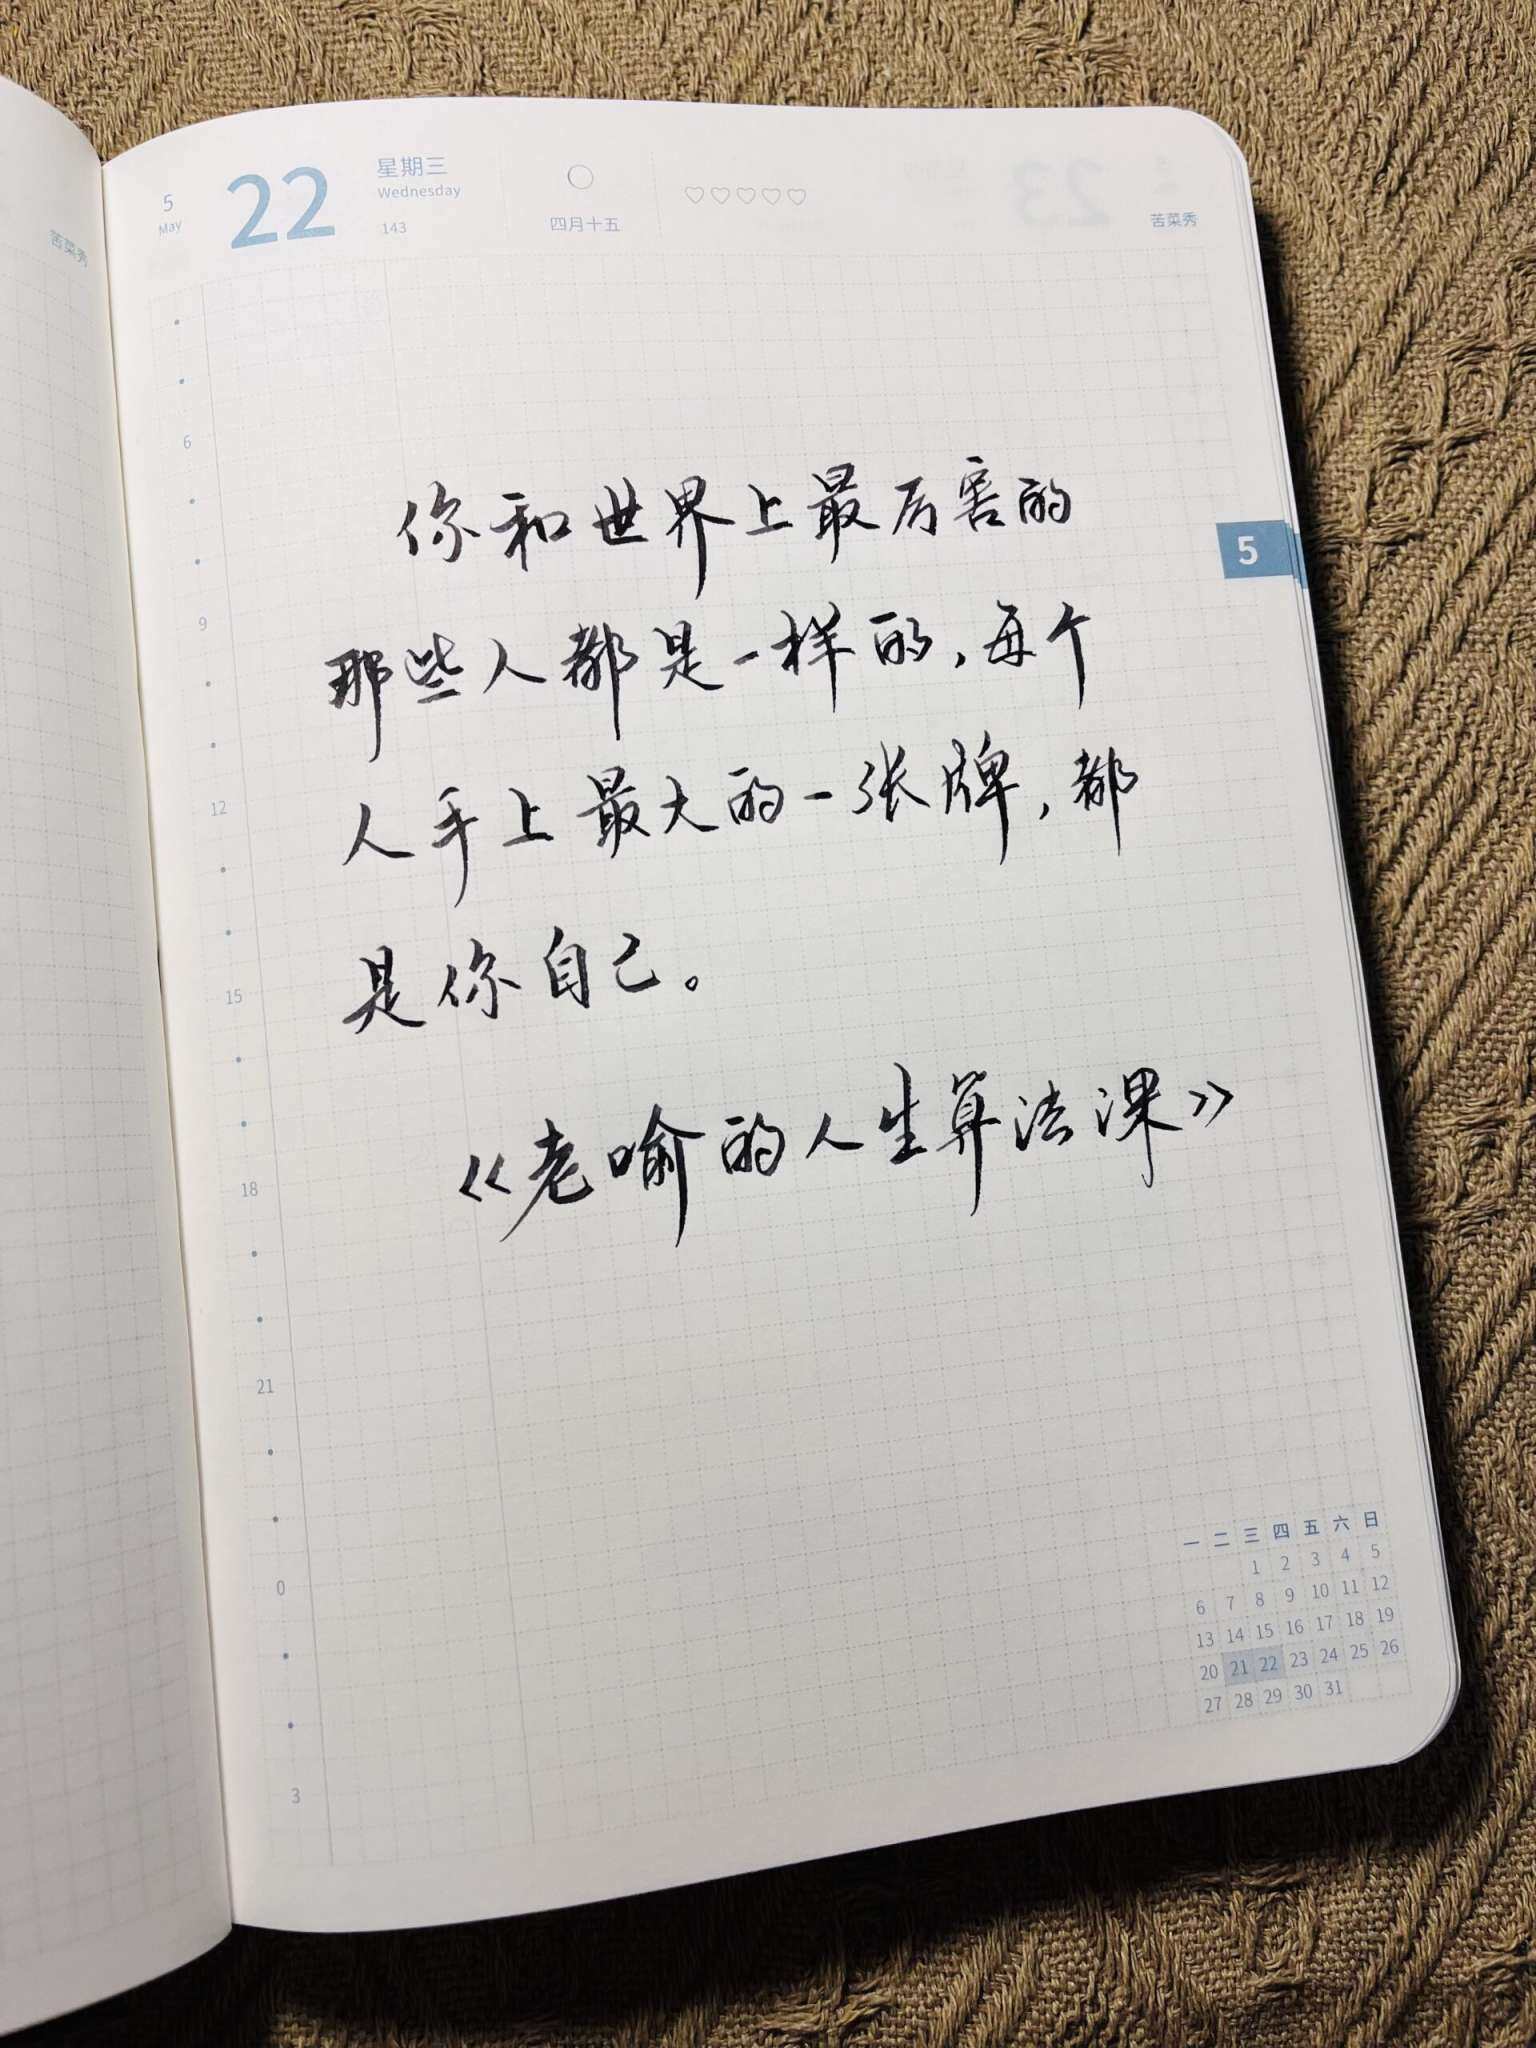 5
May
22
星期三
Wednesday
143
四月十五
苦菜秀
苦菜秀
23
5
6
9
12
15
18
21
0
3
你和世界上最厉害的
那些人都是一样的,每个
人手上最大的一张牌,都
是你自己。
《老喻的人生算法课》
一 二 三 四 五 六 日
1 2 3 4 5
6 7 8 9 10 11 12
13 14 15 16 17 18 19
20 21 22 23 24 25 26
27 28 29 30 31